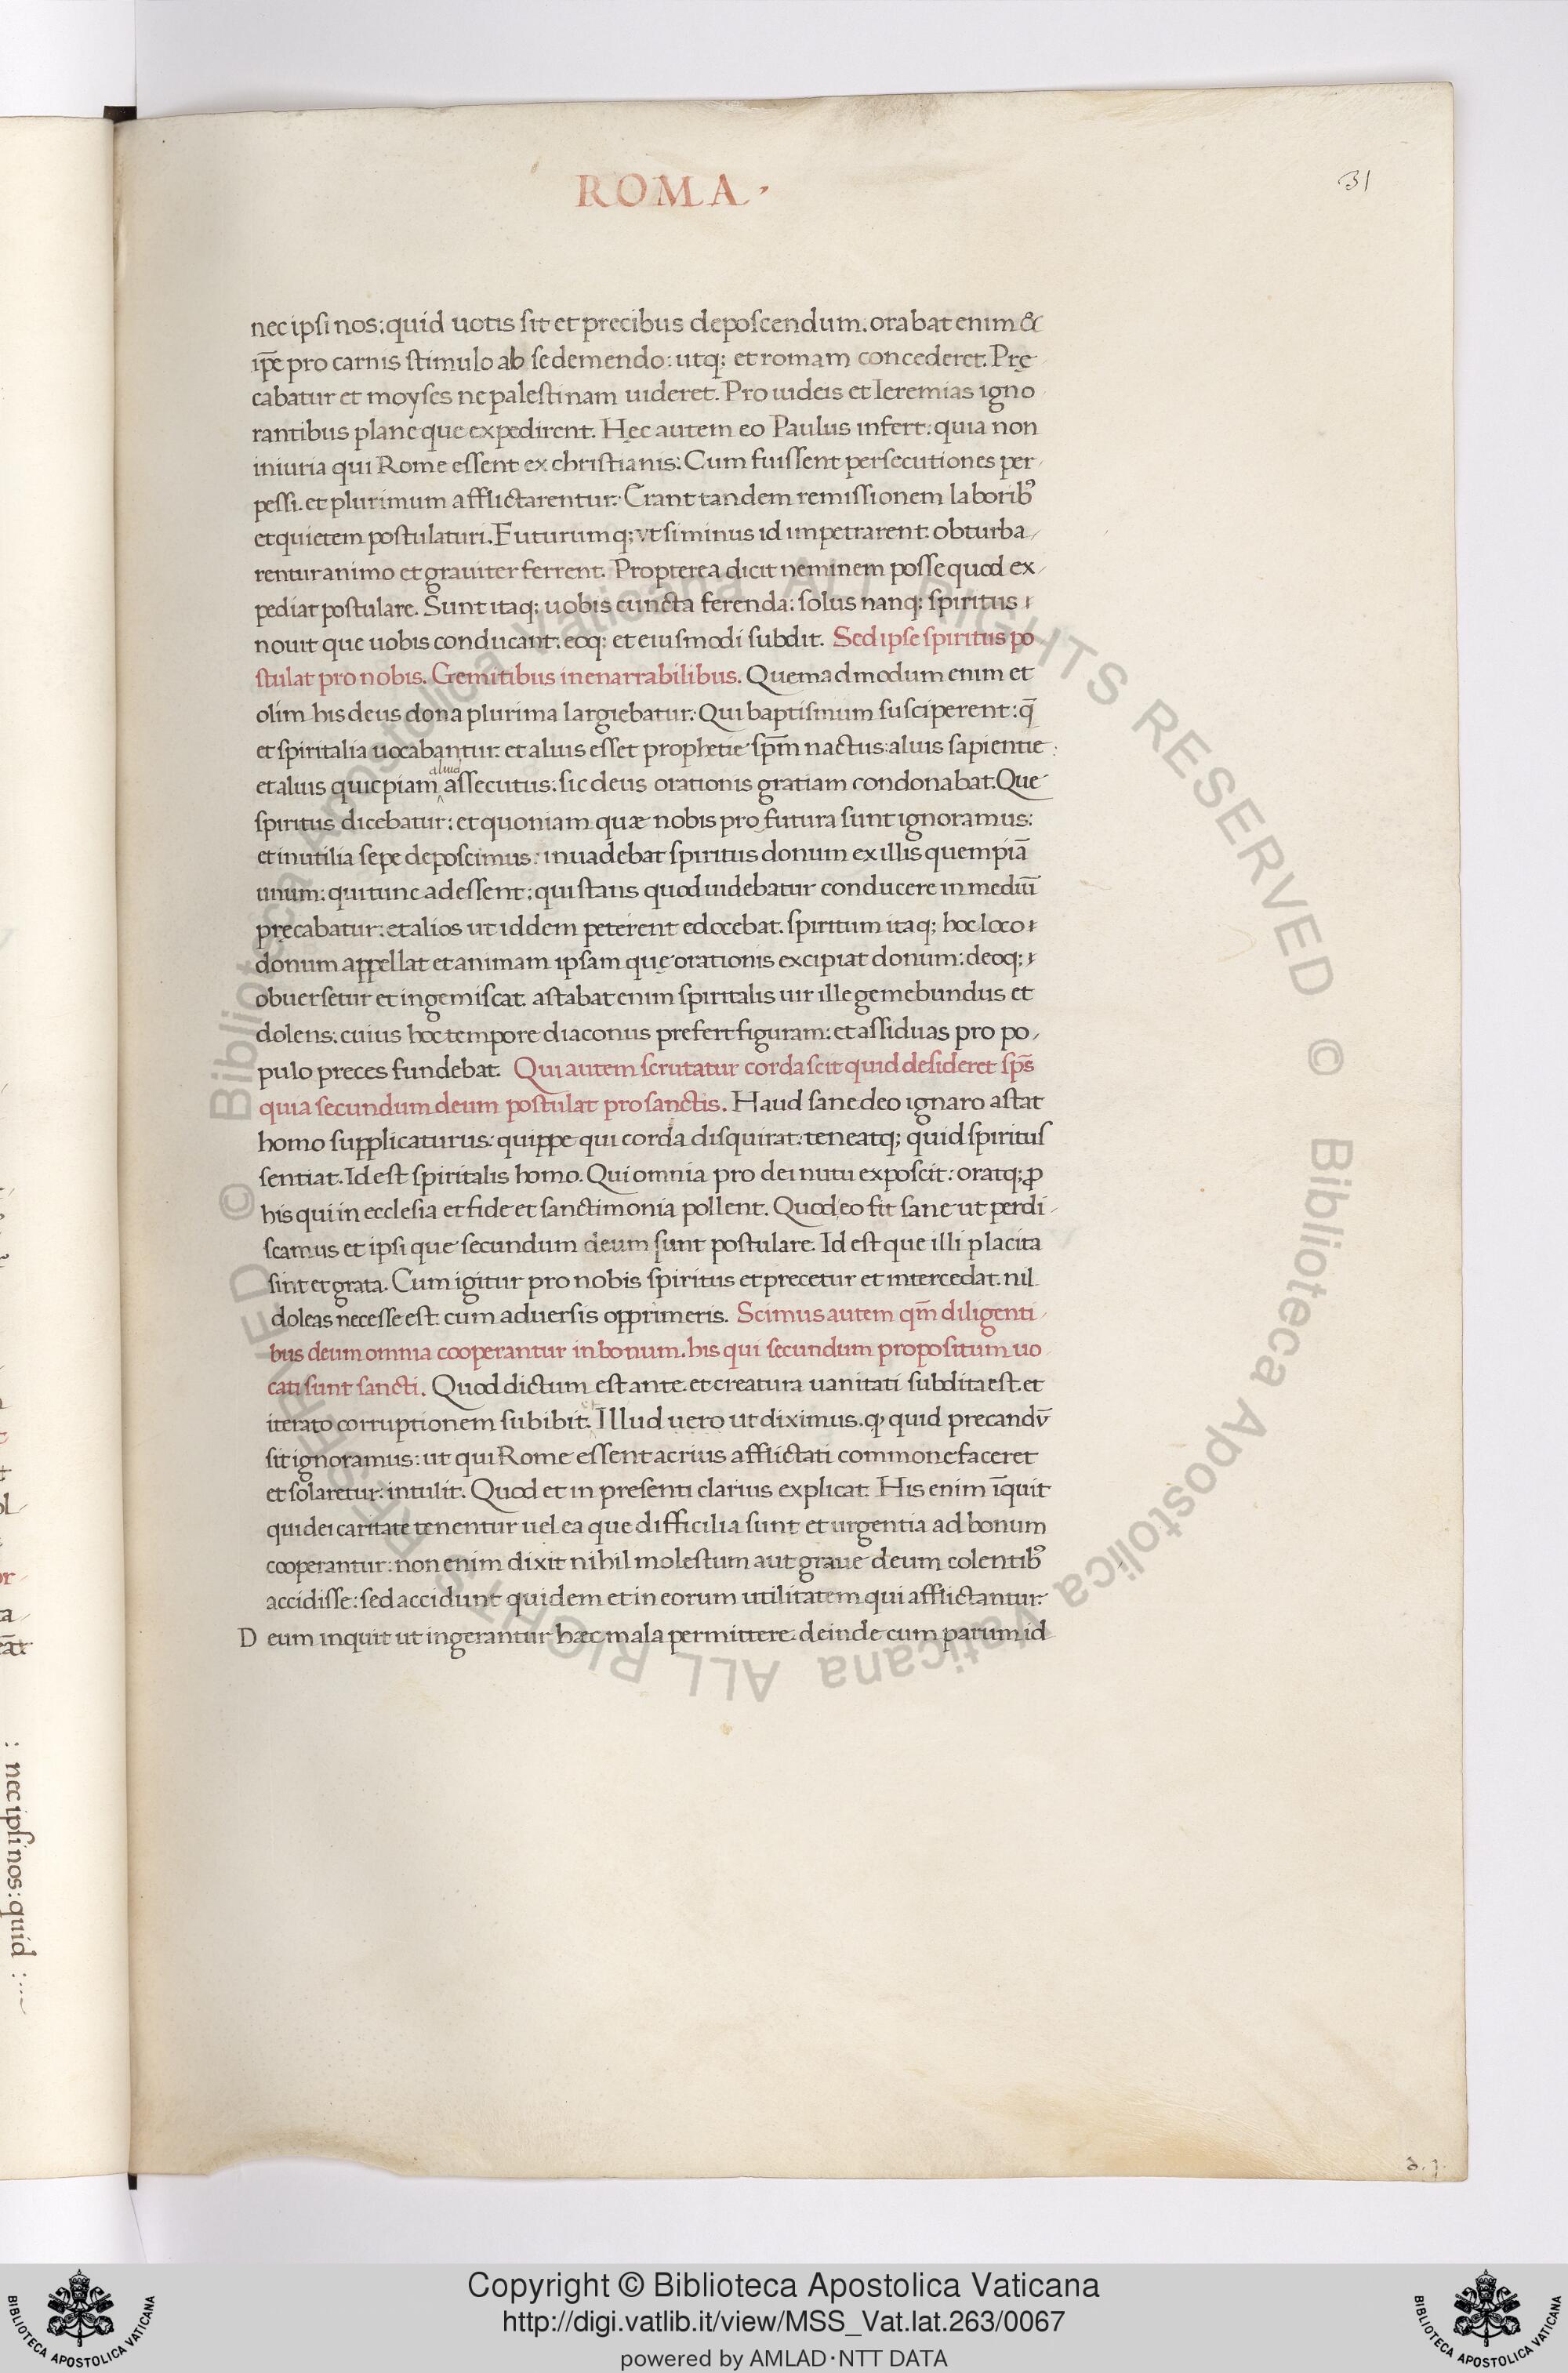 ROMA.
31
nec ipsi nos: quid uotis sit et precibus deposcendum. orabat enim &
ip̄e pro carnis stimulo ab se demendo: utq; et romam concederet. Prę
cabatur et moyses ne palestinam uideret. Pro iudeis et Ieremias igno
rantibus plane que expedirent. Hęc autem eo Paulus infert: quia non
iniuria qui Rome essent ex christianis: Cum fuissent persecutiones per-
pessi. et plurimum afflictarentur: Erant tandem remissionem laborib⁹
et quietem postulaturi. Futurumq; vt si minus id impetrarent. obturba-
rentur animo et grauiter ferrent. Propterea dicit neminem posse quod ex-
pediat postulare. Sunt itaq; uobis cuncta ferenda: solus nanq; spiritus
nouit que uobis conducant: eoq; et eiusmodi subdit. Sed ipse spiritus po
stulat pro nobis. Gemitibus inenarrabilibus. Quemadmodum enim et
olim his deus dona plurima largiebatur: Qui baptismum susciperent: q̄
et spiritalia uocabantur. et alius esset prophetie sp̄m nactus: alius sapientie:
et alius quicpiam aliud assecutus: sic deus orationis gratiam condonabat. Que
spiritus dicebatur: et quoniam quæ nobis profutura sunt ignoramus:
et inutilia sepe deposcimus: inuadebat spiritus donum ex illis quempiā
unum: qui tunc adessent: qui stans quod uidebatur conducere in mediū
pręcabatur: et alios ut iddem peterent edocebat. spiritum itaq; hoc loco
donum appellat et animam ipsam quę orationis excipiat donum: deoq;
obuersetur et ingemiscat. astabat enim spiritalis uir ille gemebundus et
dolens: cuius hoc tempore diaconus prefert figuram: et assiduas pro po-
pulo preces fundebat. Qui autem scrutatur corda scit quid desideret sp̄s
quia secundum deum postulat pro sanctis. Haud sane deo ignaro astat
homo supplicaturus: quippe qui corda disquirat: teneatq; quid spiritus
sentiat. Id est spiritalis homo. Qui omnia pro dei nutu exposcit: oratq; ꝓ
his qui in ecclesia et fide et sanctimonia pollent. Quod eo fit sane ut perdi-
scamus et ipsi que secundum deum sunt postulare. Id est que illi placita
sint et grata. Cum igitur pro nobis spiritus et precetur et intercedat. nil
doleas necesse est: cum aduersis opprimeris. Scimus autem qm̄ diligenti-
bus deum omnia cooperantur in bonum. his qui secundum propositum uo
cati sunt sancti. Quod dictum est ante. et creatura uanitati subdita est. et
iterato corruptionem subibit. Illud uero ut diximus. ꝙ quid precandv̄
sit ignoramus: ut qui Rome essent acrius afflictati commonefaceret
et solaretur: intulit. Quod et in presenti clarius explicat. His enim īquit
qui dei caritate tenentur uel ea que difficilia sunt et urgentia ad bonum
cooperantur: non enim dixit nihil molestum aut graue deum colentib⁹
accidisse: sed accidunt quidem et in eorum utilitatem qui afflictantur:
Deum inquit ut ingerantur hæc mala permittere. deinde cum parum id
nec ipsi nos: quid
© Biblioteca Apostolica Vaticana ALL RIGHTS RESERVED © Biblioteca Apostolica Vaticana ALL RIGHTS RESERVED
Copyright © Biblioteca Apostolica Vaticana
http://digi.vatlib.it/view/MSS_Vat.lat.263/0067
powered by AMLAD·NTT DATA
BIBLIOTECA APOSTOLICA VATICANA
BIBLIOTECA APOSTOLICA VATICANA